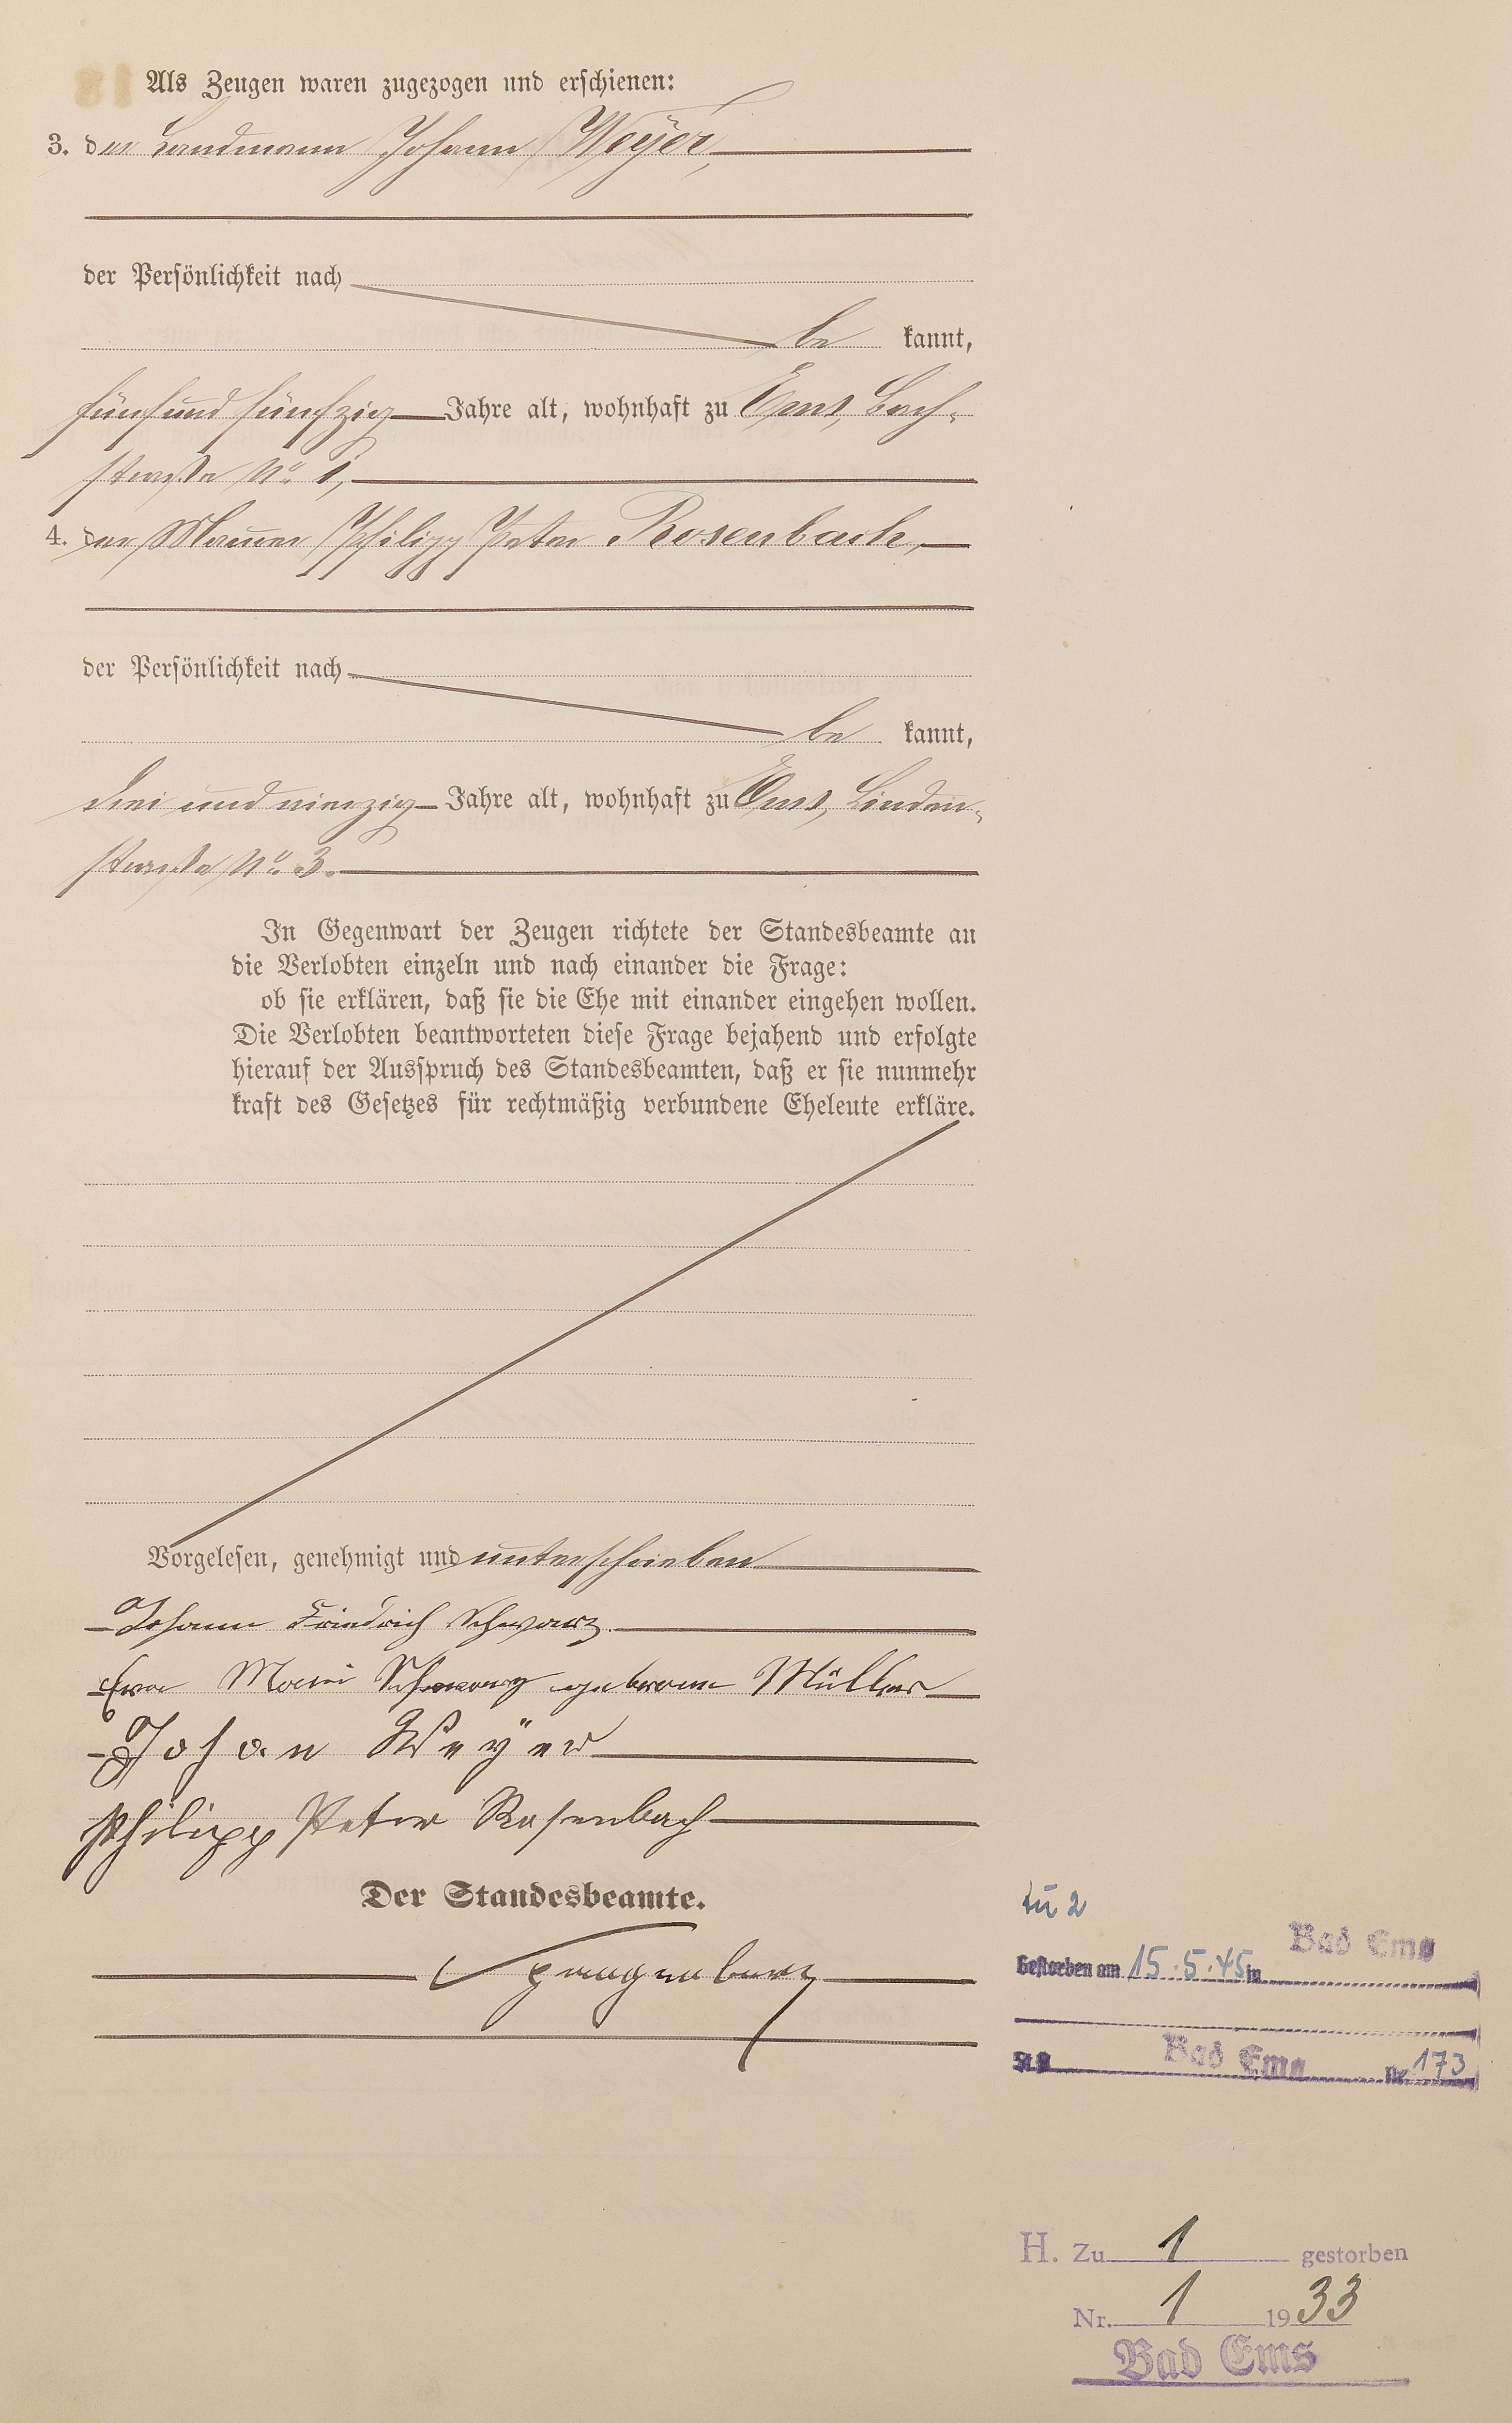 Als Zeugen waren zugezogen und erschienen:
3. der Landmann Johann Weyer,
der Persönlichkeit nach
be kannt,
fünfund fünfzig Jahre alt, wohnhaft zu Ems, Bach-
straße No. 1,
4. der Maurer Philipp Peter Rosenbach,
der Persönlichkeit nach
be kannt,
drei und vierzig Jahre alt, wohnhaft zu Ems, Linden-
straße No. 3.
In Gegenwart der Zeugen richtete der Standesbeamte an
die Verlobten einzeln und nach einander die Frage:
ob sie erklären, daß sie die Ehe mit einander eingehen wollen.
Die Verlobten beantworteten diese Frage bejahend und erfolgte
hierauf der Ausspruch des Standesbeamten, daß er sie nunmehr
kraft des Gesetzes für rechtmäßig verbundene Eheleute erkläre.
Vorgelesen, genehmigt und unterschrieben
Johann Friedrich Schwarz.
Eva Marie Schwarz geborene Müller
Johan Weyer
Philipp Peter Rosenbach
Der Standesbeamte.
Spangenberg
zu 2
Gestorben am 15.5.45 in Bad Ems
St.A. Bad Ems Nr. 173
H. Zu 1 gestorben
Nr. 1 1933
Bad Ems